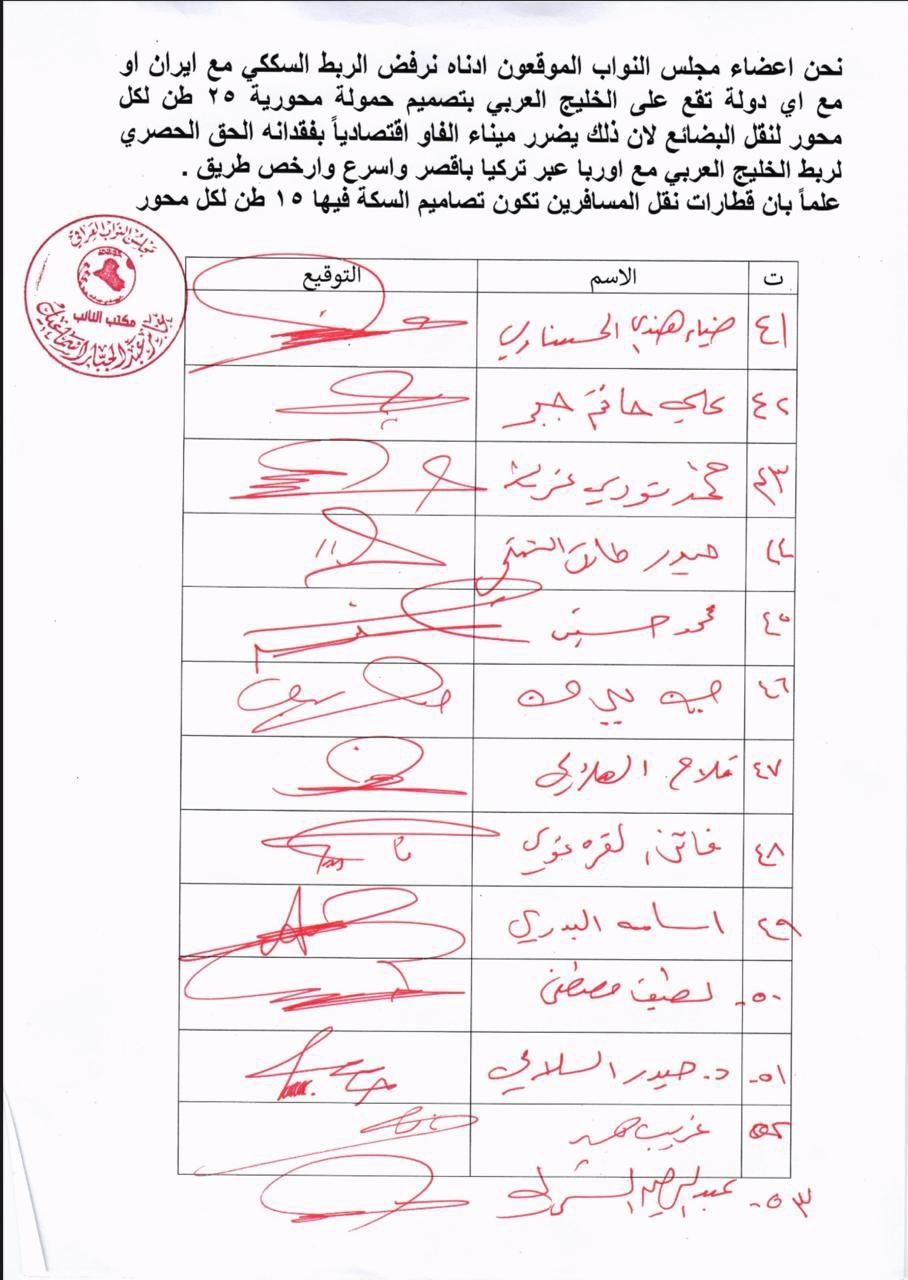 نحن اعضاء مجلس النواب الموقعون ادناه نرفض الربط السككي مع ايران او
مع اي دولة تقع على الخليج العربي بتصميم حمولة محورية ٢٥ طن لكل
محور لنقل البضائع لان ذلك يضرر ميناء الفاو اقتصادياً بفقدانه الحق الحصري
لربط الخليج العربي مع اوربا عبر تركيا باقصر واسرع وارخص طريق .
علماً بان قطارات نقل المسافرين تكون تصاميم السكة فيها ١٥ طن لكل محور
مجلس النواب العراقي
مكتب النائب
عامر عبد الجبار اسماعيل
ت الاسم التوقيع
٤١ ضياء هندي الحسناوي
٤٢ علي جبر
٤٣ محمد نوري عزيز
٤٤ حيدر طارق
٤٥ محمد حسين
٤٦
٤٧ فلاح الهلالي
٤٨ فاتن القره غولي
٤٩ اسامه البدري
٥٠- لطيف مصطفى
٥١- د. حيدر السلامي
٥٢ غريب
٥٣-